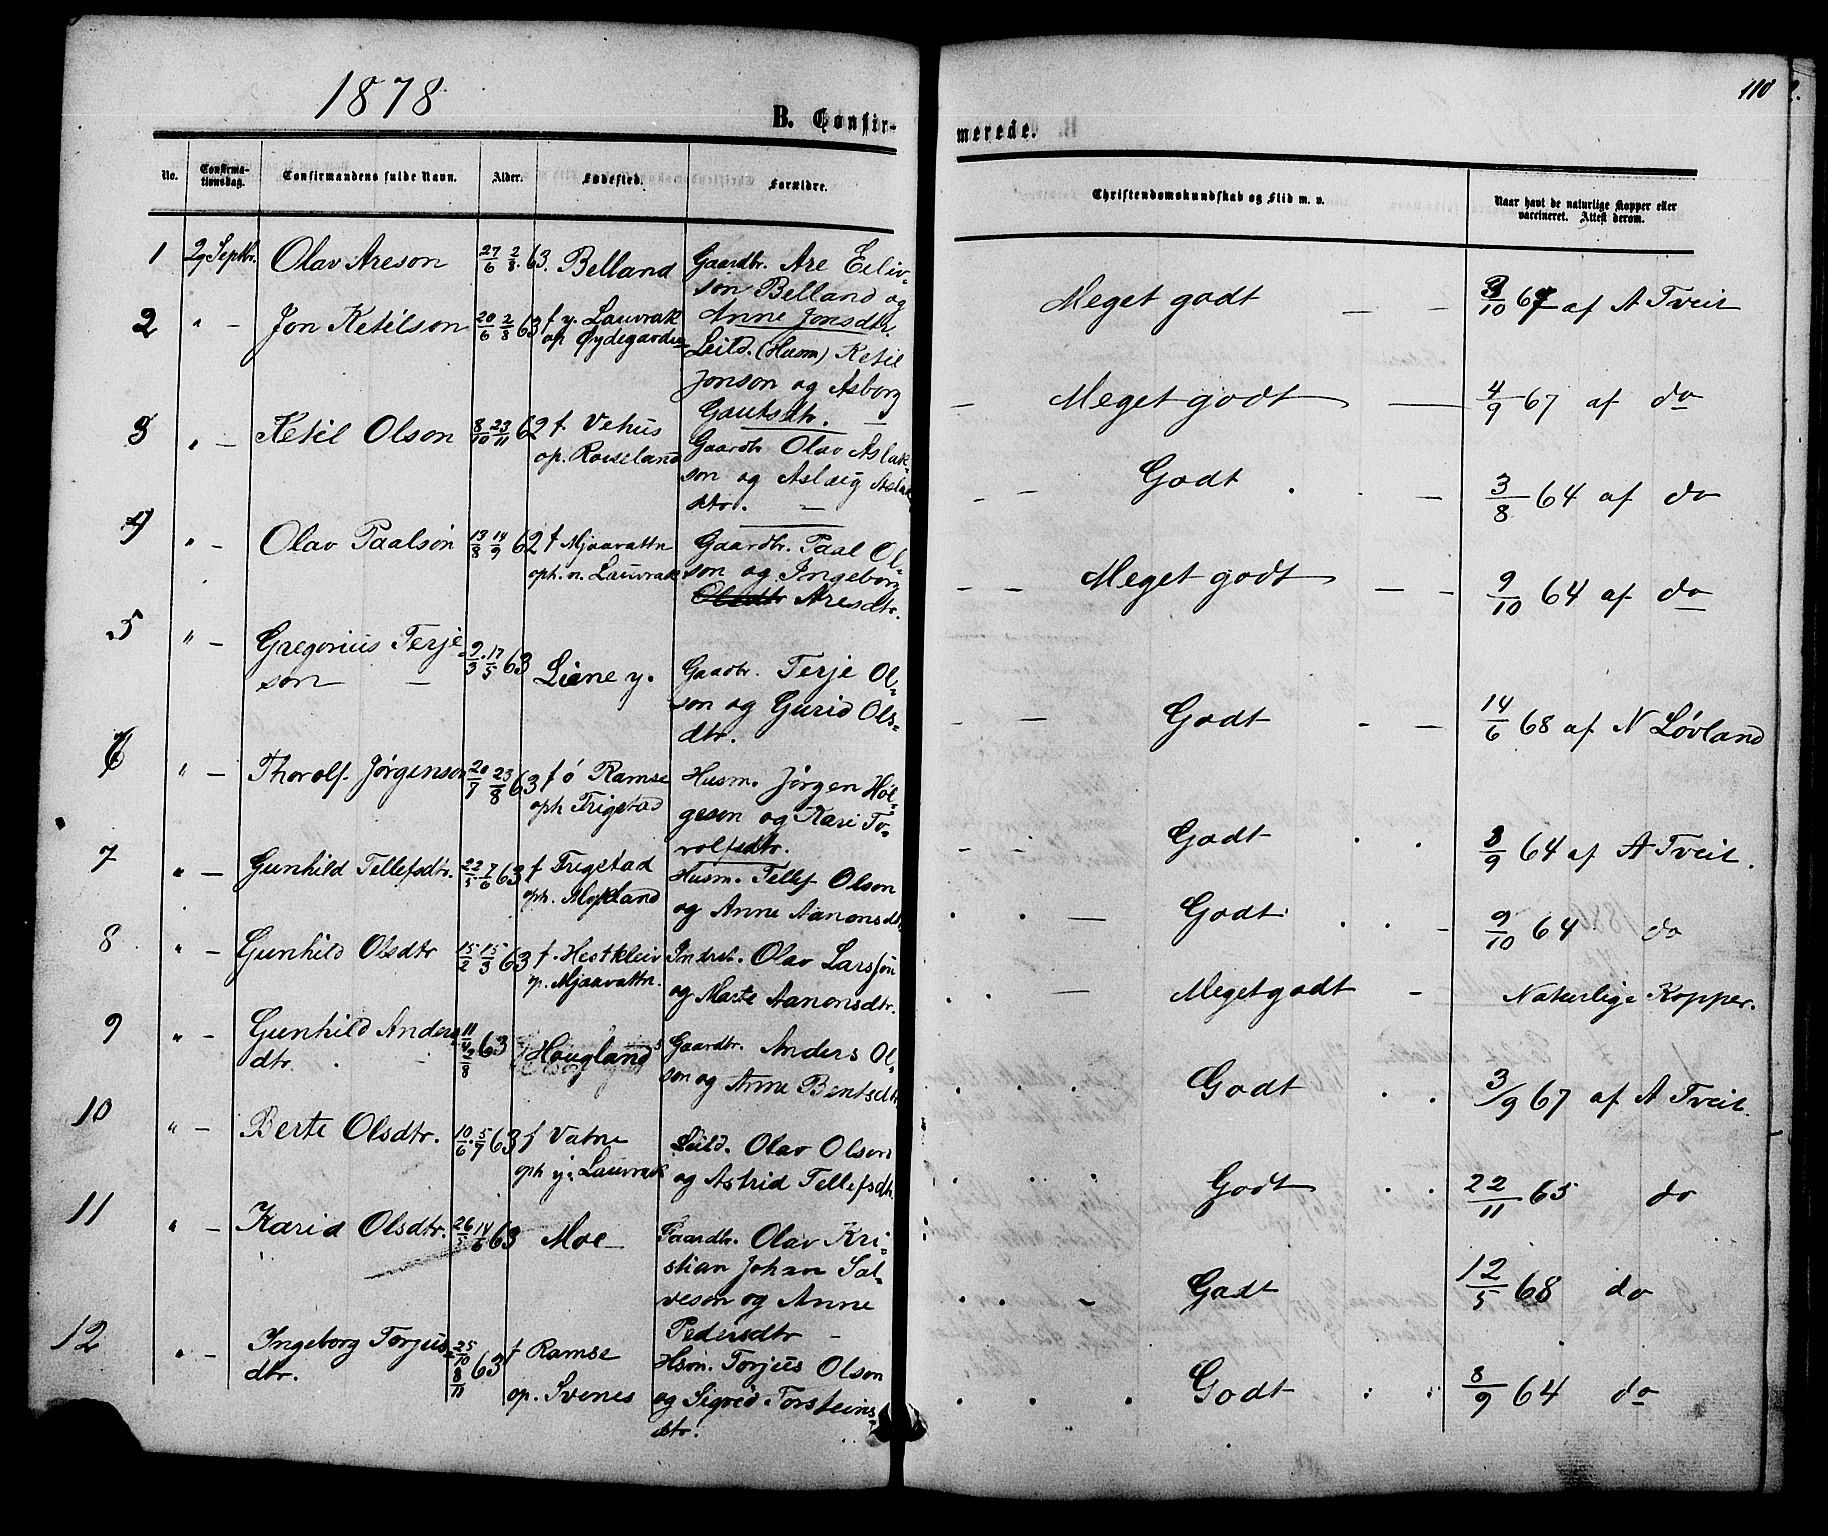 1878
110
B. Confir-
merede.
No.
Confirma-
tionsdag.
Confirmandens fulde Navn.
Alder.
Fødested.
Forældre.
Christendomskundskab og Flid m. v.
Naar havt de naturlige Kopper eller
vaccineret. Attest derom.
1 29 Septbr. Olav Areson 27/6 2/8. 63. Belland Gaardbr. Are Eiliv-
son Belland og
Anne Jonsdtr.
Meget godt — — 3/10 67 af A Tveit
2 " — Jon Ketilson 20/6 2/8 63 f y. Lauvrak
op Øydegarden
Leild. (Husm) Ketil
Jonson og Asborg
Gautsdtr. —
— Meget godt — 4/9 67 af do
3 " — Ketil Olson 8/10 23/11 62 f Vehus
op. Roiseland
Gaardbr Olav Aslak-
son og Aslaug Aslak
dtr. —
— — Godt . . — 3/8 64 af do
4 " — Olav Paalson 13/8 14/9 62 f Mjaavattn
oph. n. Lauvrak
Gaardbr. Paal Ol-
son og Ingeborg
Olsdtr Aresdtr.
— — Meget godt — — 9/10 64 af do
5 " — Gregorius Terje-
son —
9/3 . 17/5 63 Liene y. Gaardbr. Terje Ol-
son og Gurid Ols-
dtr.
— — Godt - — 14/6 68 af N Løvland
6 " — Thorolf Jørgenson 20/7 23/8 63 f ø Ramse
oph Frigstad
Husm. Jørgen Høl-
geson og Kari To-
rolfsdtr.
— - Godt . . 3/9 64 af A Tveit.
7 " — Gunhild Tellefsdtr. 22/5 . 7/6 63 f Frigstad
oph. Mykland
Husm. Tellef Olson
og Anne Aanonsdtr
. . — Godt . . - 9/10 64 do
8 " — Gunhild Olsdtr 15/2 . 15/3 63 f. Hestkleiv
op. Mjaavattn.
Inderst. Olav Larson
og Marte Aanonsdtr.
. . — Meget godt - Naturlige Kopper.
9 " — Gunhild Anders
dtr. . -
11/4 2/8 63 Hougland Gaardbr. Anders Ol-
son og Anne Bentsdtr
. . . Godt . . 3/9 67 af A Tveit.
10 " — Berte Olsdtr. 10/6 . 5/7 63 f Vatne
oph y. Lauvrak
Leild. Olav Olson
og Astrid Tellefsdtr.
. . . Godt . . 22/11 65 do
11 " — Karid Olsdtr. 26/5 14/6 63 Moe — Gaardbr. Olav Kri-
stian Johan Sal-
veson og Anne
Pedersdtr —
. . - Godt 12/5 68 do
12 " — Ingeborg Torjus-
dtr.
25/10 8/11 63 f Ramse
op. Svenes
Hsm. Torjus Olson
og Sigrid Torsteins-
dtr.
. . . Godt : : 8/9 64 do